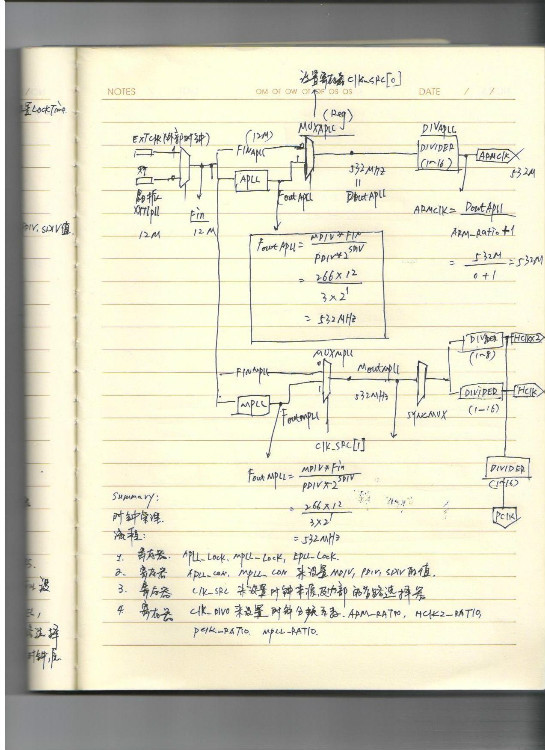 设置寄存器 CLK_SRC[0]
NOTES
DATE / /
置LockTime
(Reg)
MUXAPLL
EXTCLK(外部时钟)
(12M)
FINAPLL
APLL
FoutAPLL
532MHz
=
DoutAPLL
DIVAPLL
DIVIDER
(1~16)
ARMCLK
532M
或
晶振
XXTIPLL
12M
Fin
12M
PDIV, SDIV值
ARMCLK = DoutAPLL
ARM_Ratio+1
= 532M
0+1
= 532M
FoutAPLL = MDIV * FIN
PDIV*2^SDIV
= 266 × 12
3 × 2^1
= 532MHz
MUXMPLL
FINMPLL
MPLL
FoutMPLL
MoutMPLL
532MHz
SYNCMUX
DIVIDER
(1~8)
HCLKX2
DIVIDER
(1~16)
HCLK
DIVIDER
(1~16)
PCLK
CLK_SRC[1]
FoutMPLL = MDIV * Fin
PDIV*2^SDIV
= 266 × 12
3×2^1
= 532MHz
Summary:
时钟管理
流程:
1. 寄存器 APLL_LOCK. MPLL_LOCK, EPLL_LOCK.
2. 寄存器 APLL_CON. MPLL_CON 来设置MDIV, PDIV, SDIV的值.
3. 寄存器 CLK_SRC 来设置时钟来源及内部的多路选择器
4. 寄存器 CLK_DIV0来设置时钟分频系数. ARM_RATIO, HCLK2_RATIO,
PCLK_RATIO. MPLL_RATIO.
设
选择
时钟,